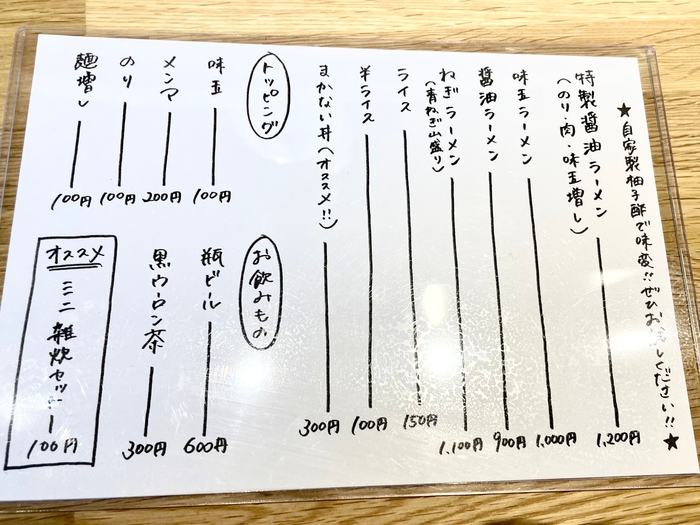 ★自家製柚子酢で味変!!ぜひお試しください!!★
特製醤油ラーメン 1,200円
(のり・肉・味玉増し)
味玉ラーメン 1,000円
醤油ラーメン 900円
ねぎラーメン 1,100円
(青ねぎ山盛り)
ライス 150円
半ライス 100円
まかない丼(オススメ!!) 300円
トッピング
味玉 100円
メンマ 200円
のり 100円
麺増し 100円
お飲みもの
瓶ビール 600円
黒ウーロン茶 300円
オススメ
ミニ雑炊セット 100円